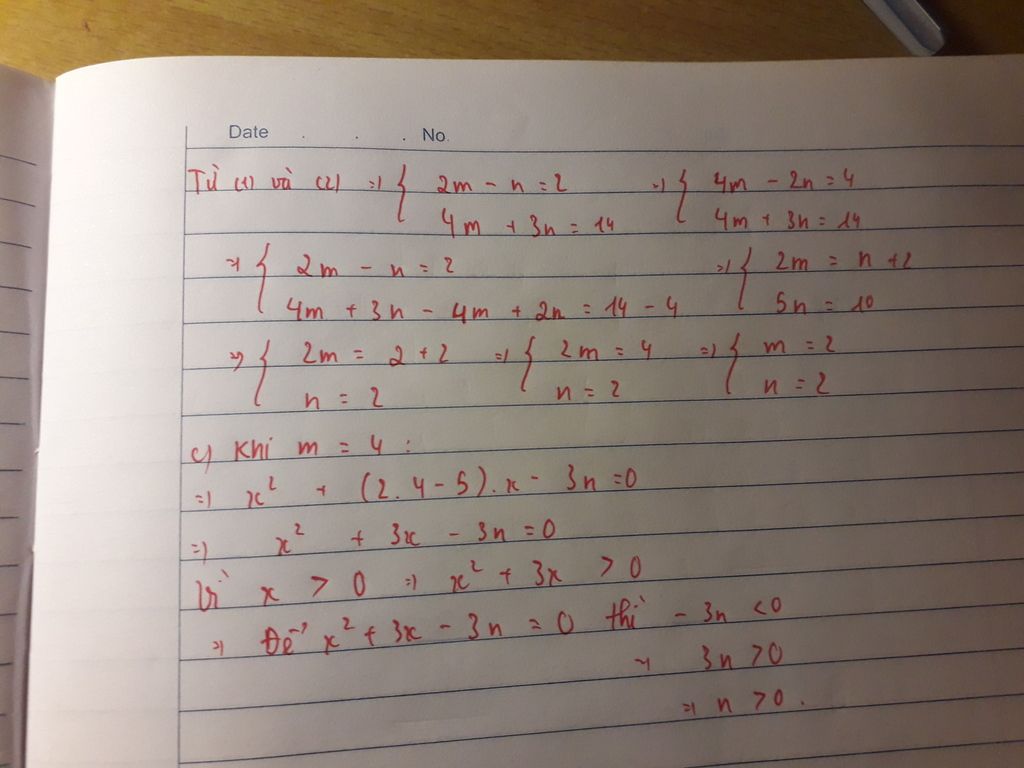 Date . . . No.
Từ (1) và (2) => { 2m - n = 2 => { 4m - 2n = 4
4m + 3n = 14 4m + 3n = 14
=> { 2m - n = 2 => { 2m = n + 2
4m + 3n - 4m + 2n = 14 - 4 5n = 10
=> { 2m = 2 + 2 => { 2m = 4 => { m = 2
n = 2 n = 2 n = 2
c) Khi m = 4 :
=> x² + (2.4-5).x - 3n = 0
=> x² + 3x - 3n = 0
Vì x > 0 => x² + 3x > 0
=> Để x² + 3x - 3n = 0 thì - 3n < 0
=> 3n > 0
=> n > 0.